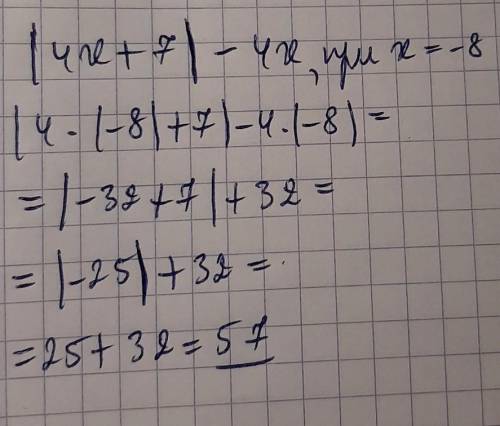 |4x+7| - 4x, при x = -8
|4·|-8|+7|-4·|-8| =
= |-32+7|+32 =
= |-25|+32 =
= 25+32 = 57